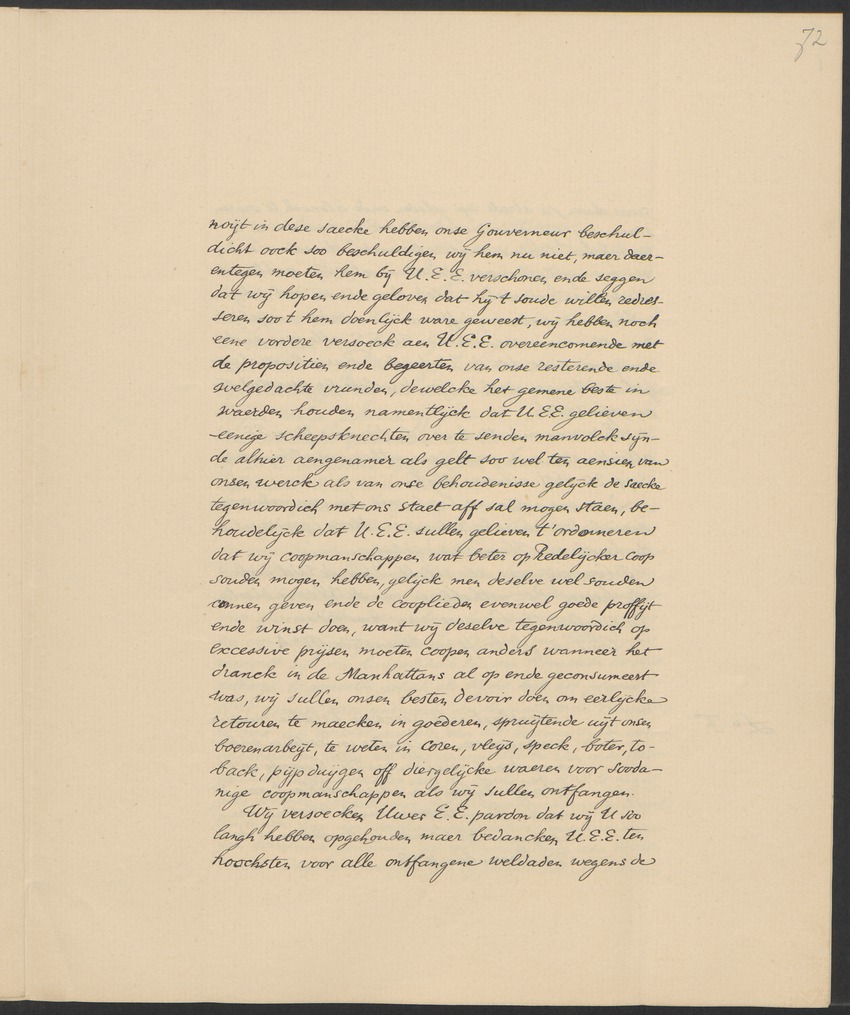 72
noijt in dese saecke hebben onse Gouverneur beschul-
dicht oock soo beschuldigen wij hem nu niet, maer daer-
entegen moeten hem bij U.E.E. verschonen ende seggen
dat wij hopen ende geloven dat hij t soude willen redres-
seren soo t hem doenlijck ware geweest, wij hebben noch
eene vordere versoeck aen U.E.E. overeencomende met
de propositien ende begeerten van onse resterende ende
welgedachte vrunden, dewelcke het gemene beste in
waerden houden namentlijck dat U.E.E. gelieven
eenige scheepsknechten over te senden manvolck sijn-
de alhier aengenamer als gelt soo wel ten aensien van
onsen werck als van onse behoudenisse gelijck de saecke
tegenwoordich met ons staet aff sal mogen staen, be-
houdelijck dat U.E.E. sullen gelieven t'ordonneren
dat wij coopmanschappen wat beter op Redelijcker coop
souden mogen hebben, gelijck men deselve wel souden
connen geven ende de cooplieden evenwel goede proffijt
ende winst doen, want wij deselve tegenwoordich op
excessive prijsen moeten coopen anders wanneer het
dranck in de Manhattans al op ende geconsumeert
was, wij sullen onsen besten devoir doen om eerlijcke
retouren te maecken in goederen, spruijtende uijt onsen
boerenarbeijt, te weten in coren, vleijs, speck, boter, to-
back, pijpduijgen off diergelijcke waeren voor sooda-
nige coopmanschappen als wij sullen ontfangen.
Wij versoecken Uwer E.E. pardon dat wij U soo
langh hebben opgehouden maer bedancken U.E.E. ten
hoochsten voor alle ontfangene weldaden wegens de